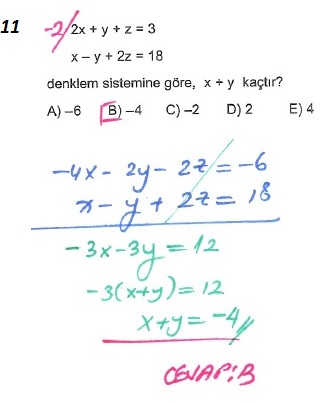 11 -2/ 2x + y + z = 3
x – y + 2z = 18
denklem sistemine göre, x + y kaçtır?
A) –6 B) –4 C) –2 D) 2 E) 4
-4x - 2y - 2z = -6
x - y + 2z = 18
-3x - 3y = 12
-3(x+y) = 12
x+y = -4//
CEVAP: B